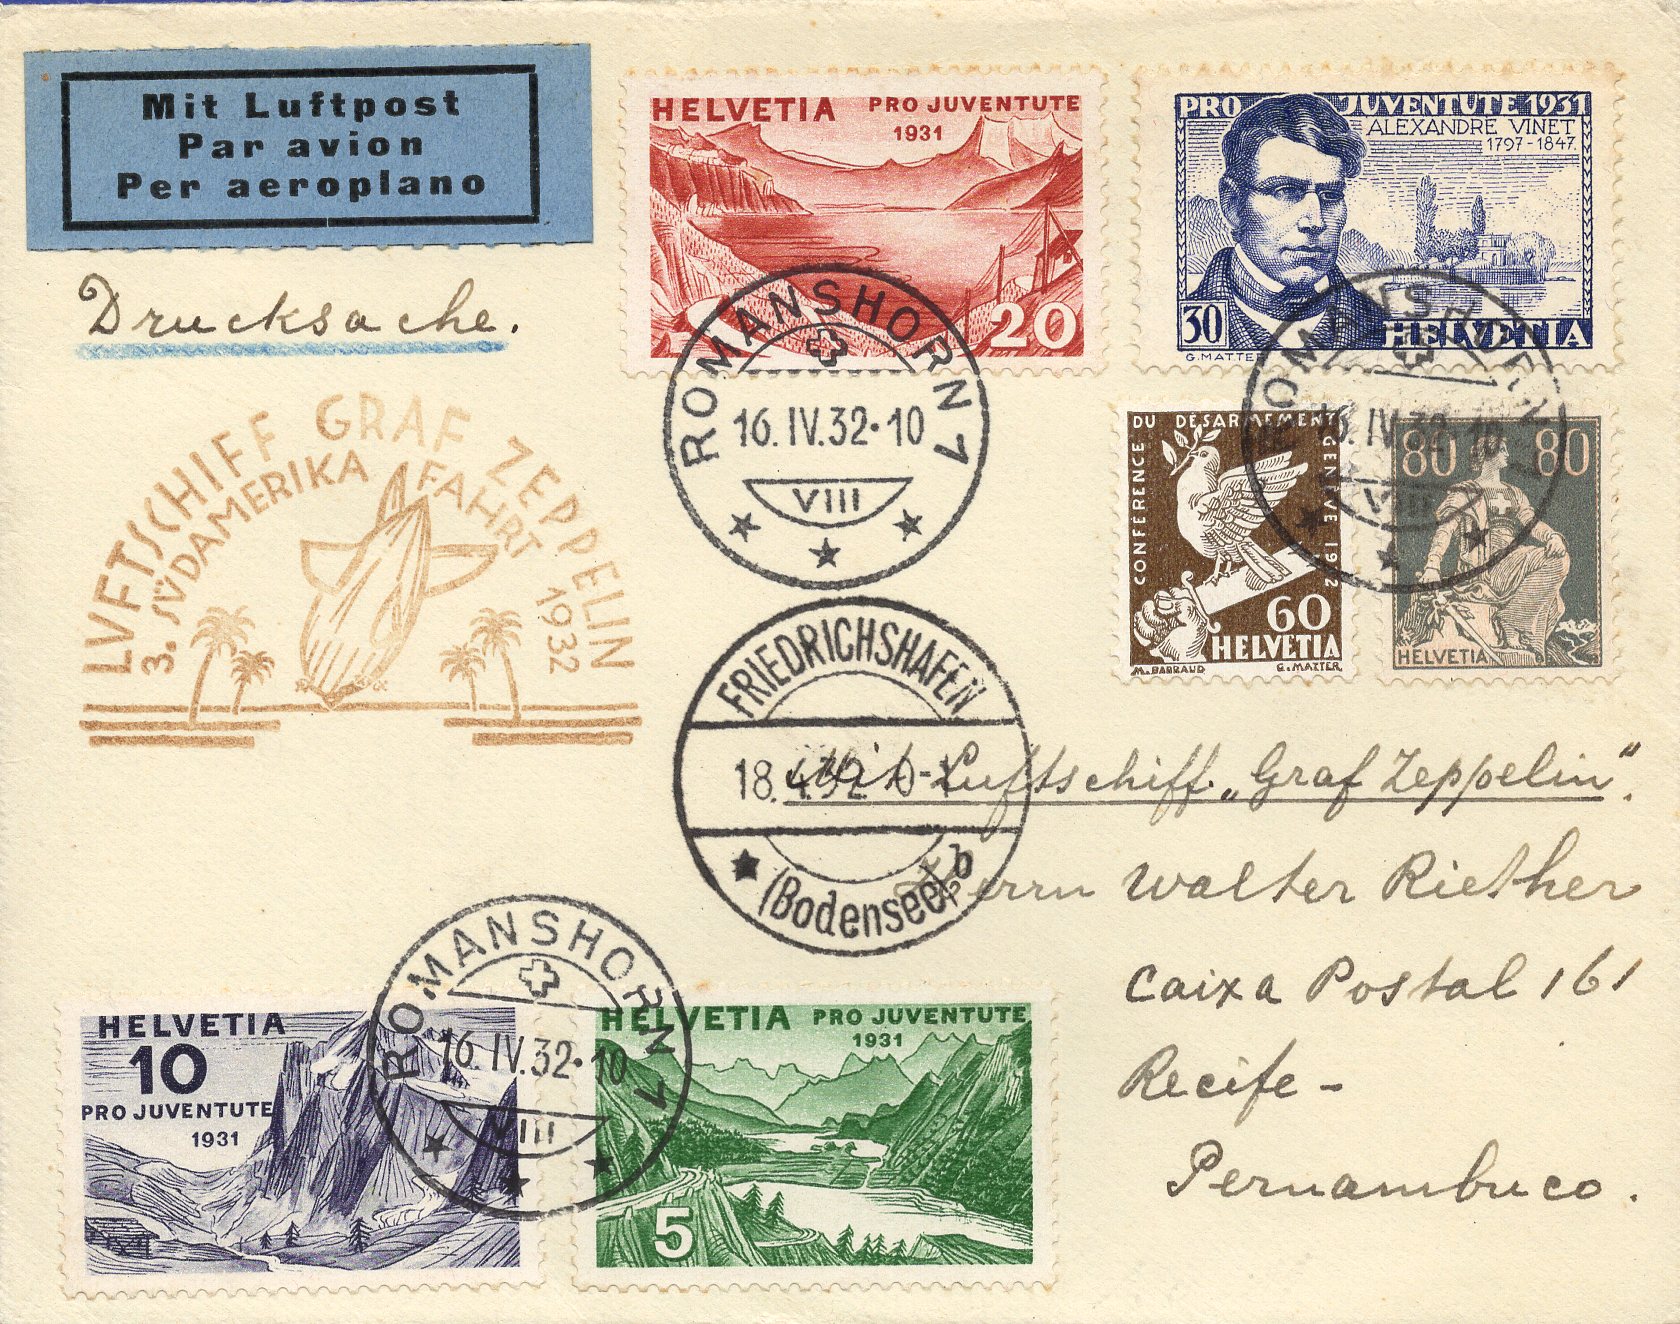 Mit Luftpost
Par avion
Per aeroplano
Drucksache.
LVFTSCHIFF GRAF ZEPPELIN
3. SÜDAMERIKA FAHRT 1932
HELVETIA PRO JUVENTUTE
1931
20
PRO JUVENTUTE 1931
ALEXANDRE VINET
1797-1847.
30
HELVETIA
G. MATTER
ROMANSHORN 1
16.IV.32·10
VIII
ROMANSHORN 1
16.IV.32·10
VIII
CONFÉRENCE DU DÉSARMEMENT GENÈVE 1932
60
HELVETIA
M. BARRAUD G. MATTER
80 80
HELVETIA
FRIEDRICHSHAFEN
18.4.32. 0-1
(Bodensee) b
Mit Luftschiff „Graf Zeppelin“.
Herrn Walter Riether
Caixa Postal 161
Recife -
Pernambuco.
ROMANSHORN 1
16.IV.32·10
VIII
HELVETIA
10
PRO JUVENTUTE
1931
HELVETIA PRO JUVENTUTE
1931
5